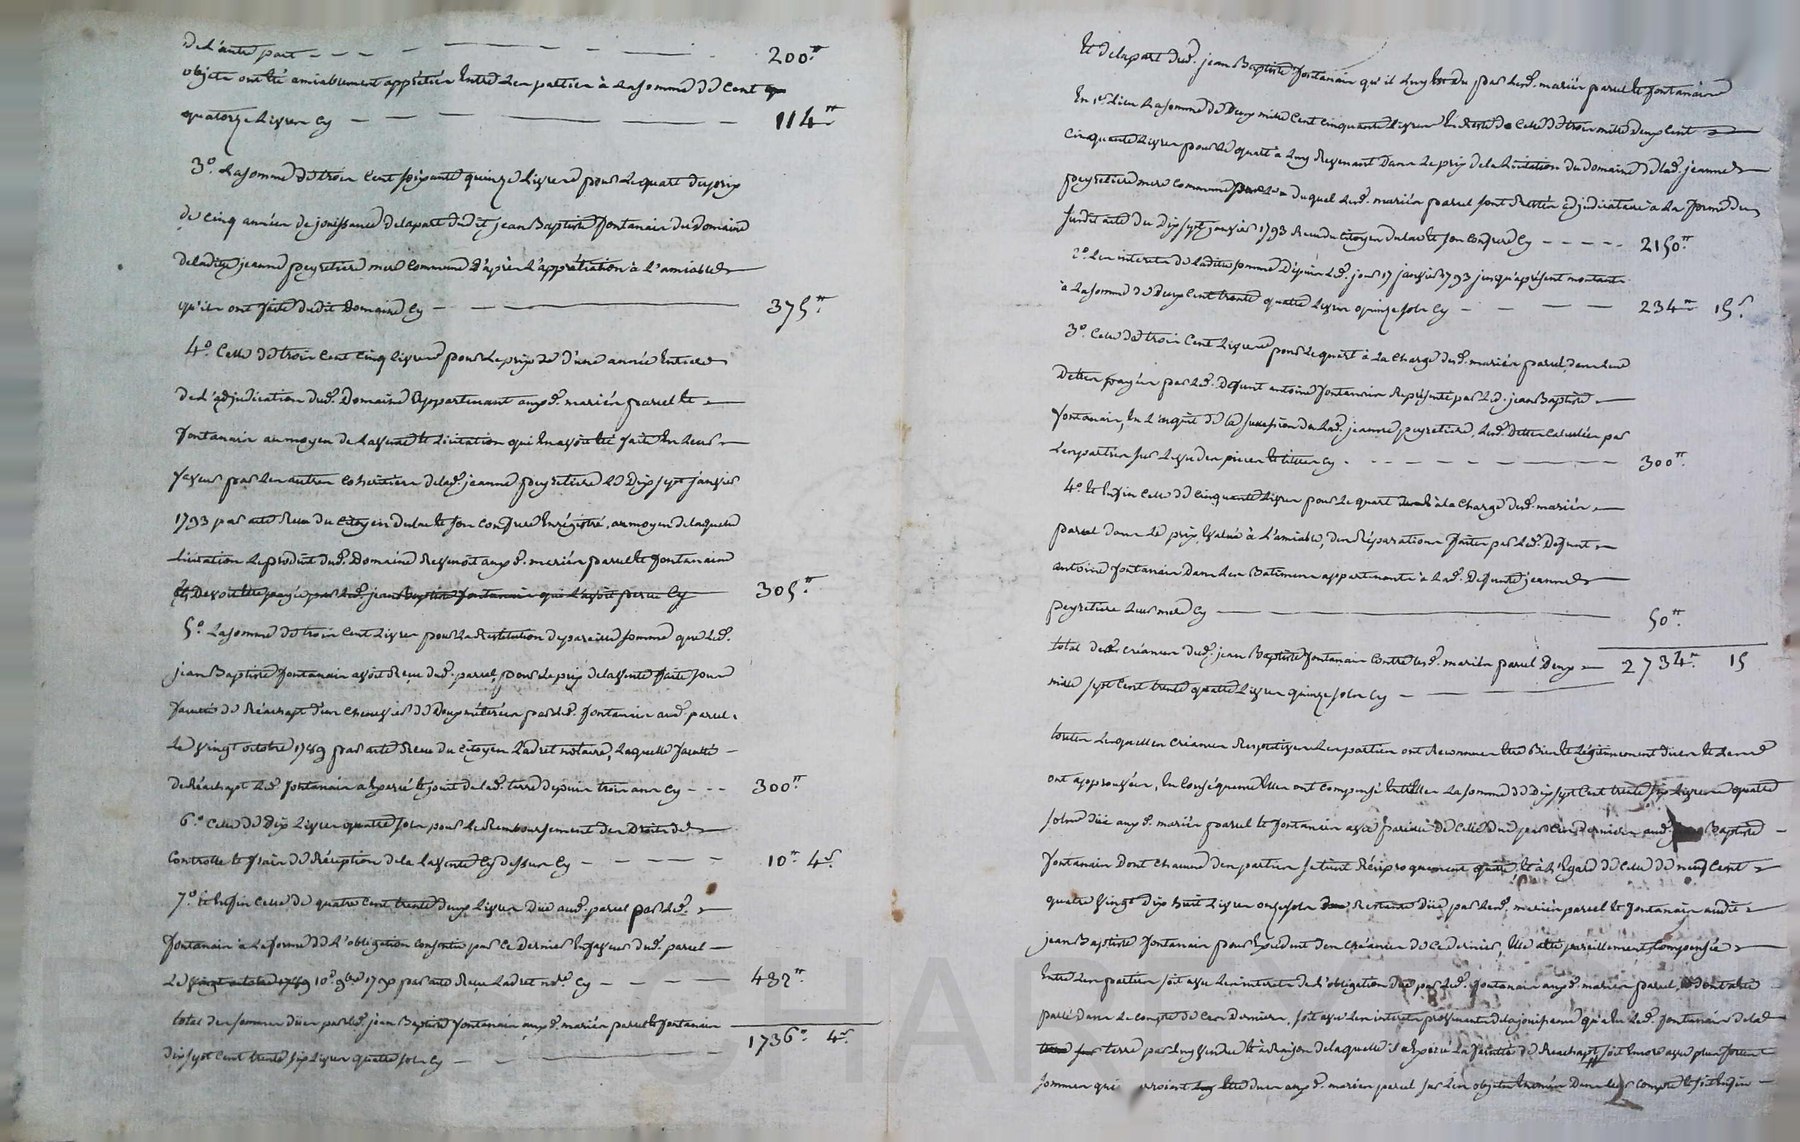 de L'autre part 200 ᵗᵗ
objets ont été amiablement appretiés Entre Les parties à La somme de Cent
quatorze Livres Cy 114 ᵗᵗ
3.° La somme de trois Cent soixante quinze Livres pour Le quart du prix
de Cinq années de jouissance de la part dudit jean Baptiste fontanair du domaine
de ladite jeanne peyretiere mere Commune d'après L'appretiation à L'amiable
qu'ils ont faite dudit domaine Cy 375 ᵗᵗ
4.° Celle de trois Cent Cinq Livres pour Le prix de d'une année Entiere
de L'adjudication dud. Domaine appartenant aux d. mariés parcel et
fontanair au moyen de La vente et Licitation qui En avoit été faite En Leur
faveur par Les autres Cohéritiers de lad. jeanne peyretiere Le Dix sept janvier
1793 par acte Reçu du Citoyen dulac et son Confrere Enrégistré, au moyen de laquelle
Licitation Le produit dud. Domaine Revenoit aux d. mariés parcel et fontanair
Cy 305 ᵗᵗ
5.° La somme de trois Cent Livres pour La Restitution de pareille somme que Led.
jean Baptiste fontanair avoit Reçue dud. parcel, pour Le prix de la vente faite sous
faculté de Réachapt d'un Chenevier de Deux métérées par led. fontanair aud. parcel
Le vingt octobre 1789 par acte Reçu du Citoyen Ladret notaire, Laquelle faculté
de Réachapt Led. fontanair a Exercé et jouit de lad. terre depuis trois ans Cy 300 ᵗᵗ
6.° Celle de Dix Livres quatre sols pour Le Remboursement des Droits de
Controlle et frais de Réception de la vente Cy dessus Cy 10 ᵗᵗ 4 ˢ
7.° Et Enfin Celle de quatre Cent trente deux Livres Due aud. parcel par Led.
fontanair à La forme de L'obligation Consentie par Ce Dernier En faveur dud. parcel
Le vingt octobre 1789 10.ᵉ 9bre par acte Reçu Ladret nore Cy 432 ᵗᵗ
total des sommes dües par led. jean Baptiste fontanair aux d. mariés parcel et fontanair
dix sept Cent trente six Livres quatre sols Cy 1736 ᵗᵗ 4 ˢ
Et de la part dud. jean Baptiste fontanair qu'il Luy Est du par Lesd. mariés parcel et fontanair
En 1er Lieu La somme de Deux mille Cent Cinquante Livres En Reste de Celle de trois mille Deux Cent
Cinquante Livres pour Le quart à Luy Revenant Dans Le prix de la Licitation du domaine de lad. jeanne
peyretiere mere Commune duquel Lesd. mariés parcel sont Restés adjudicataires à La forme du
susdit acte du Dix sept janvier 1793 Reçu du Citoyen dulac et son Confrere Cy 2150 ᵗᵗ
2.° Les interets de ladite somme Depuis Led. jour 17 janvier 1793 jusqu'aprésent montants
à La somme de Deux Cent trente quatre Livres quinze sols Cy 234 ᵗᵗ 15 ˢ
3.° Celle de trois Cent Livres pour Le quart à La Charge desd. mariés parcel, dans Les
Dettes payées par Led. Defunt antoine fontanair Représenté par Led. jean Baptiste
fontanair, En L'acquit de la succession de Lad. jeanne peyretiere, Lesd. Dettes Calculées par
Les parties sur Le vu des pieces et titres Cy 300 ᵗᵗ
4.° Et Enfin Celle de Cinquante Livres pour Le quart à la Charge desd. mariés
parcel dans Le prix, Evalué à L'amiable, des Réparations faites par Led. Defunt
antoine fontanair Dans Les Batimens appartenants à Lad. Defunte jeanne
peyretiere Leur mere Cy 50 ᵗᵗ
total des Créances dud. jean Baptiste fontanair Contre Lesd. mariés parcel Deux 2734 ᵗᵗ 15
mille sept Cent trente quatre Livres quinze sols Cy
toutes Lesquelles Créances Respectives Les parties ont Reconnues Etre Bien Et Légitimement dües Et Les
ont approuvées, En Conséquence Elles ont Compensé Entr'Elles La somme de Dix sept Cent trente six Livres quatre
sols düe aux d. mariés parcel et fontanair avec pareille de Celle due par Ces derniers aud. Baptiste
fontanair Dont Chacune des parties se tient Réciproquement quitte, Et à L'égard de Celle de neuf Cent
quatre vingt Dix huit Livres onze sols Restante Düe par Lesd. mariés parcel et fontanair audit
jean Baptiste fontanair pour Excédent des Créances de Ce dernier, Elle a été pareillement Compensée
Entre Les parties soit avec Les interets de L'obligation Due par Led. fontanair aux d. mariés parcel, dont
parlé Dans Le Compte de Ces Derniers, soit avec Les interets provenants de la jouissance qu'a Eu Led. fontanair de la
terre par Luy vendue Et à Raison de laquelle il a Exercé La faculté de Reachapt, soit Encore avec plusieurs
sommes qui Etre dües aux d. mariés parcel sur Les objets Enoncés Dans Leur Compte Et soit Enfin